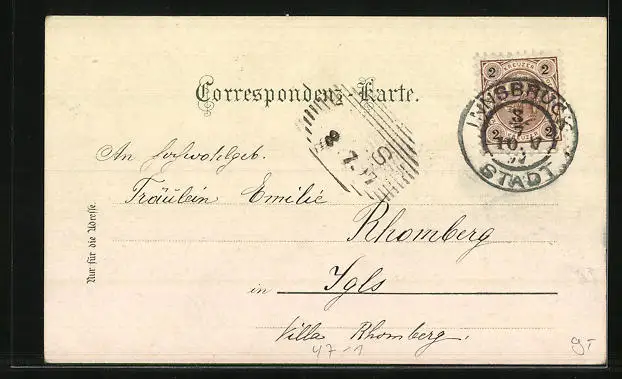 2 KREUZER 2
2 KREUZER 2
Correspondenz-Karte.
INNSBRUCK
3/7
10.V
97
STADT
8.7.97
An hochwohlgeb.
Fräulein Emilie
Rhomberg
in Igls
Villa Rhomberg.
Nur für die Adresse.
47-1
9-